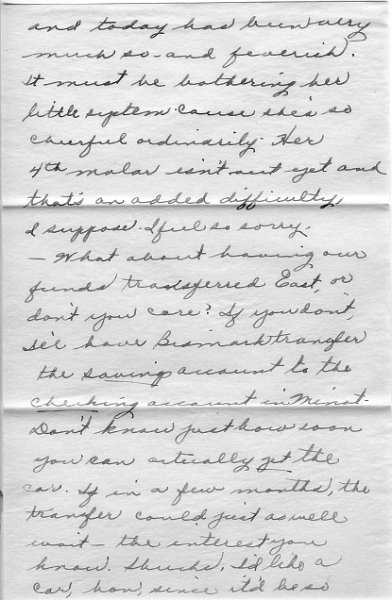 and today has been very
much so - and feverish.
It must be bothering her
little system cause she's so
cheerful ordinarily. Her
4th molar isn't out yet and
that's an added difficulty,
I suppose. I feel so sorry.
- What about having our
funds transferred East, or
don't you care? If you don't,
I'll have Bismark transfer
the saving account to the
checking account in Minot.
Don't know just how soon
you can actually get the
car. If in a few months, the
transfer could just as well
wait - the interest you
know. Shucks, I'd like a
car, hon, since it'd be so